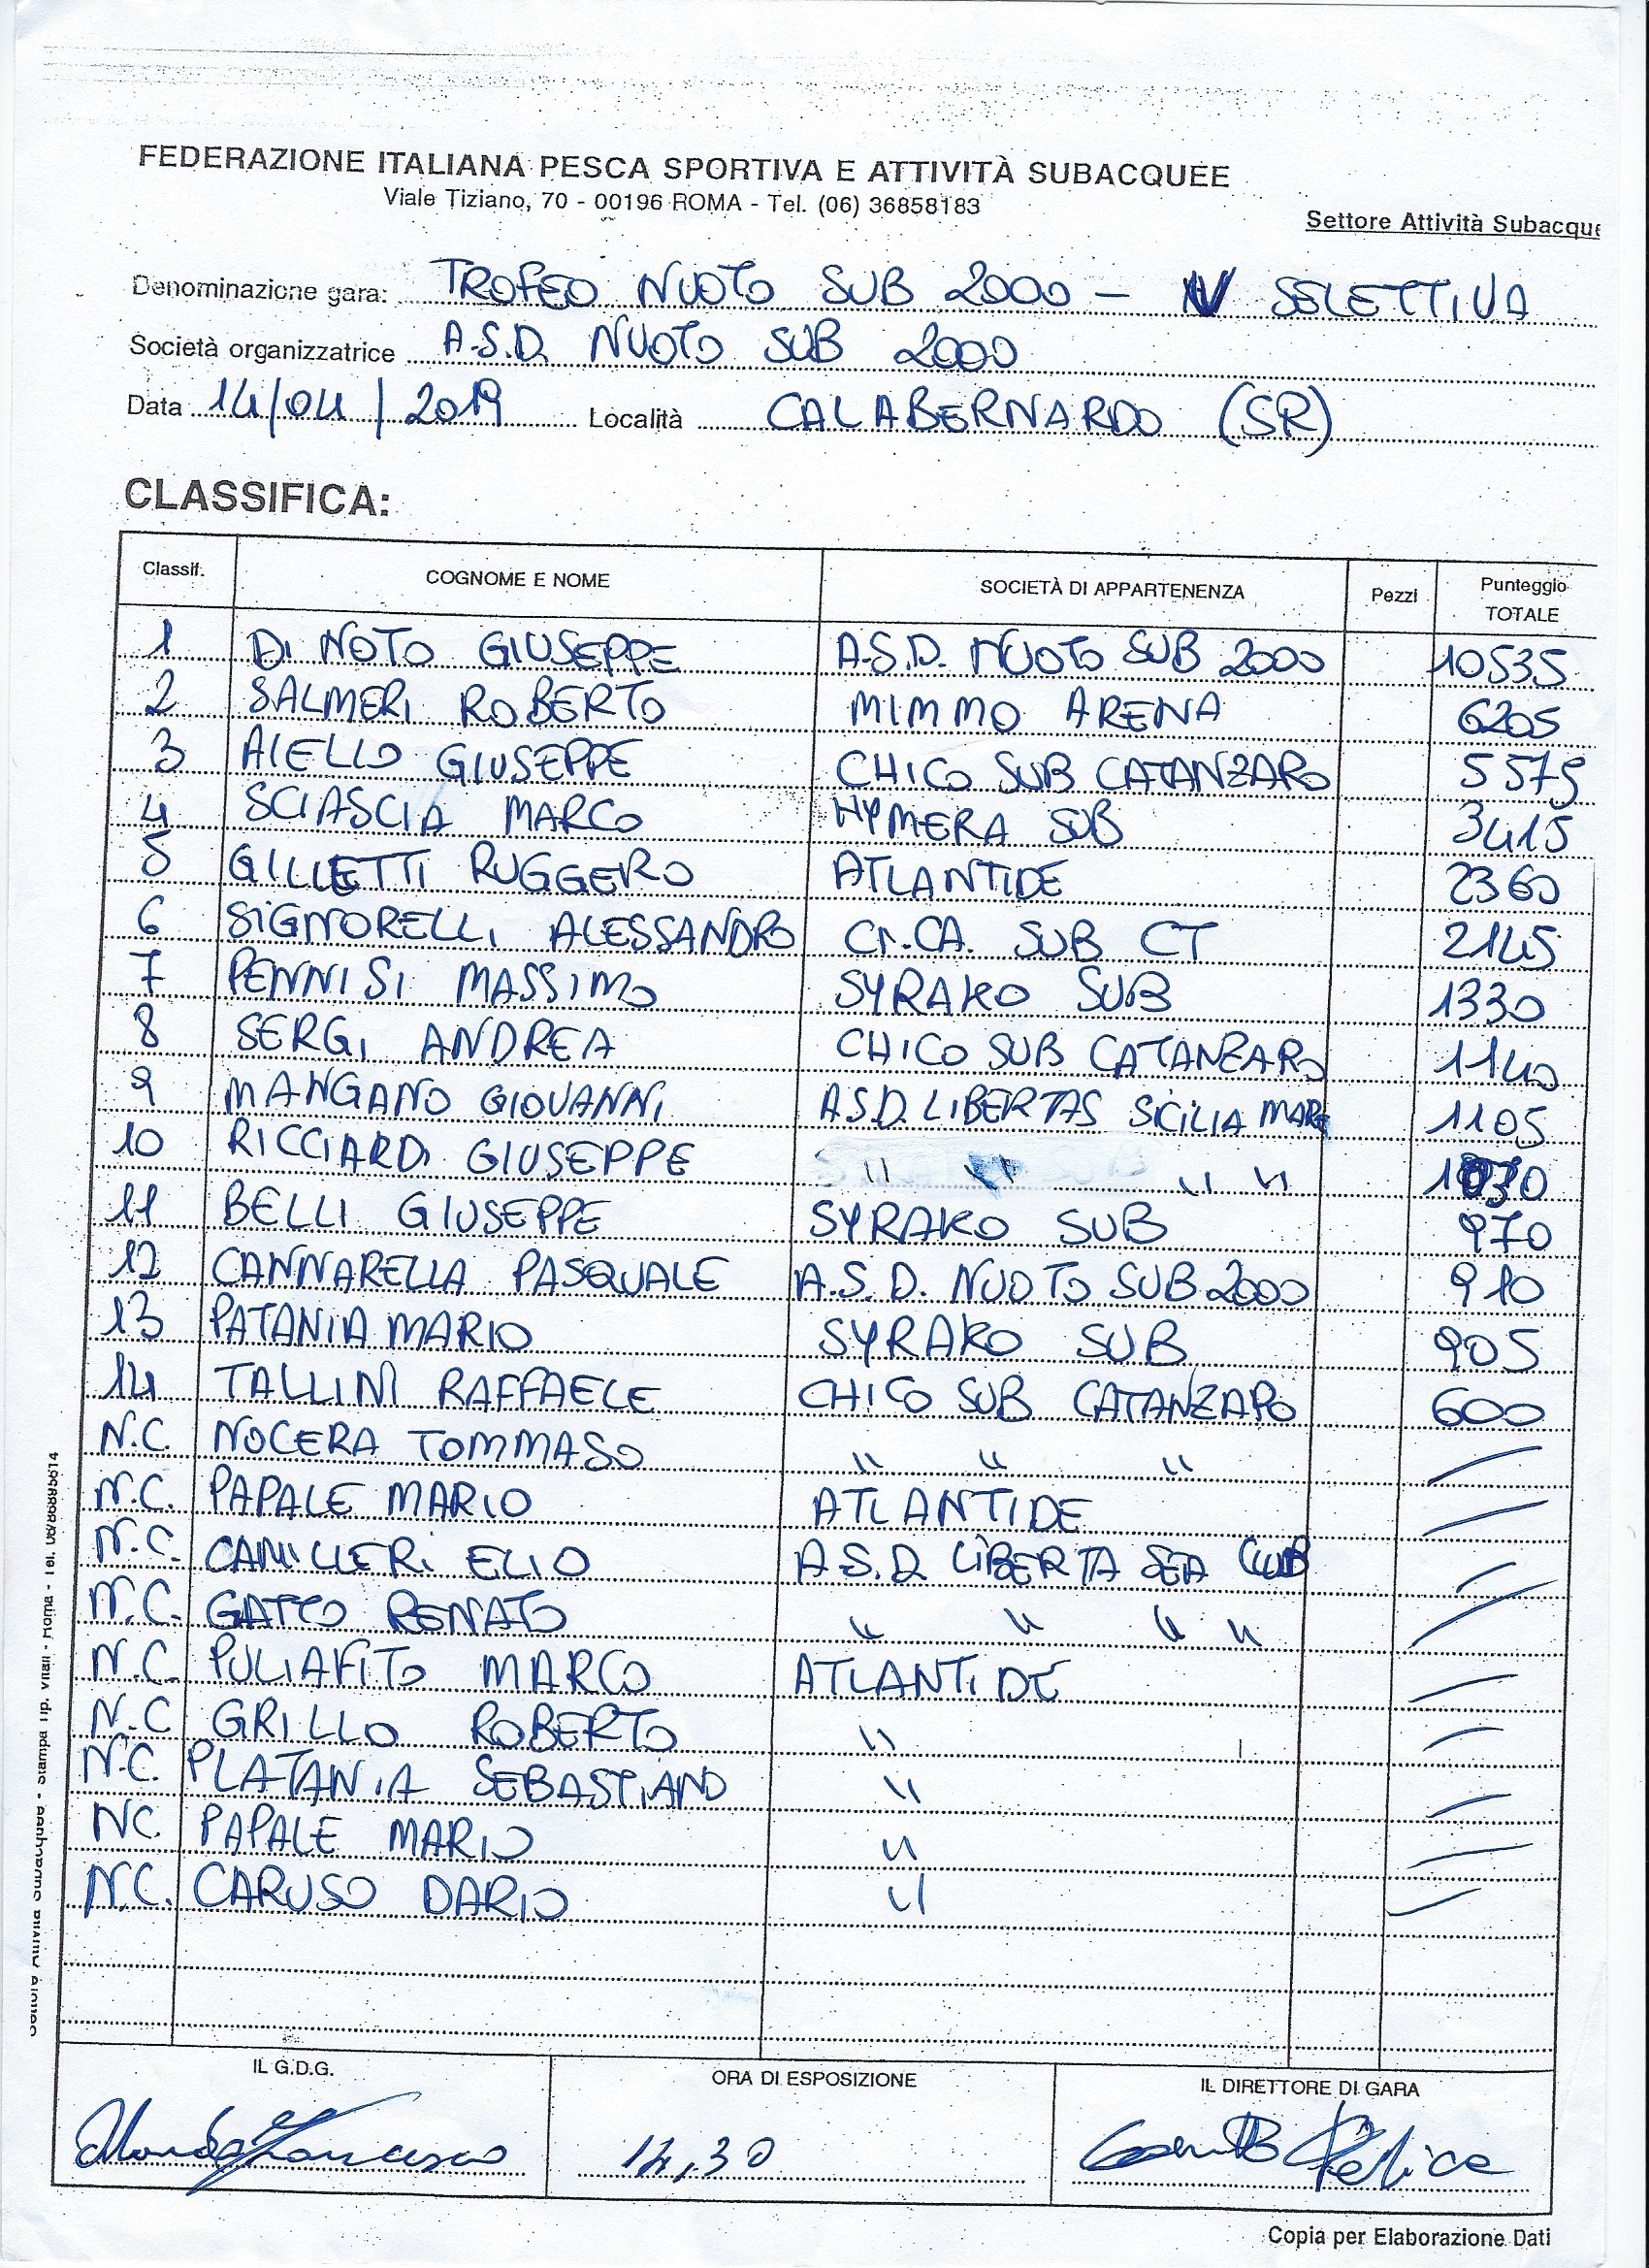 FEDERAZIONE ITALIANA PESCA SPORTIVA E ATTIVITÀ SUBACQUEE
Viale Tiziano, 70 - 00196 ROMA - Tel. (06) 36858183
Settore Attività Subacque
Denominazione gara: TROFEO NUOTO SUB 2000 - IV SELETTIVA
Società organizzatrice A.S.D. NUOTO SUB 2000
Data 14/04/2019 Località CALABERNARDO (SR)
CLASSIFICA:
Classif. COGNOME E NOME SOCIETÀ DI APPARTENENZA Pezzi Punteggio TOTALE
1 DI NOTO GIUSEPPE A.S.D. NUOTO SUB 2000 10535
2 SALMERI ROBERTO MIMMO ARENA 6205
3 AIELLO GIUSEPPE CHICO SUB CATANZARO 5575
4 SCIASCIA MARCO HYMERA SUB 3415
5 GILLETTI RUGGERO ATLANTIDE 2360
6 SIGNORELLI ALESSANDRO CI.CA. SUB CT 2145
7 PENNISI MASSIMO SYRAKO SUB 1330
8 SERGI ANDREA CHICO SUB CATANZARO 1140
9 MANGANO GIOVANNI A.S.D. LIBERTAS SICILIA MARE 1105
10 RICCIARDI GIUSEPPE " " " " 
11 BELLI GIUSEPPE SYRAKO SUB 970
12 CANNARELLA PASQUALE A.S.D. NUOTO SUB 2000 910
13 PATANIA MARIO SYRAKO SUB 905
14 TALLINI RAFFAELE CHICO SUB CATANZARO 600
N.C. NOCERA TOMMASO " " " /
N.C. PAPALE MARIO ATLANTIDE /
N.C. CAMILLERI ELIO A.S.D. LIBERTA SEA CLUB /
N.C. GATTO RENATO " " " " /
N.C. PULIAFITO MARCO ATLANTIDE /
N.C GRILLO ROBERTO " /
N.C. PLATANIA SEBASTIANO " /
NC. PAPALE MARIO " /
N.C. CARUSO DARIO " /
IL G.D.G. ORA DI ESPOSIZIONE IL DIRETTORE DI GARA
Francesco 14,30 Felice
Copia per Elaborazione Dati